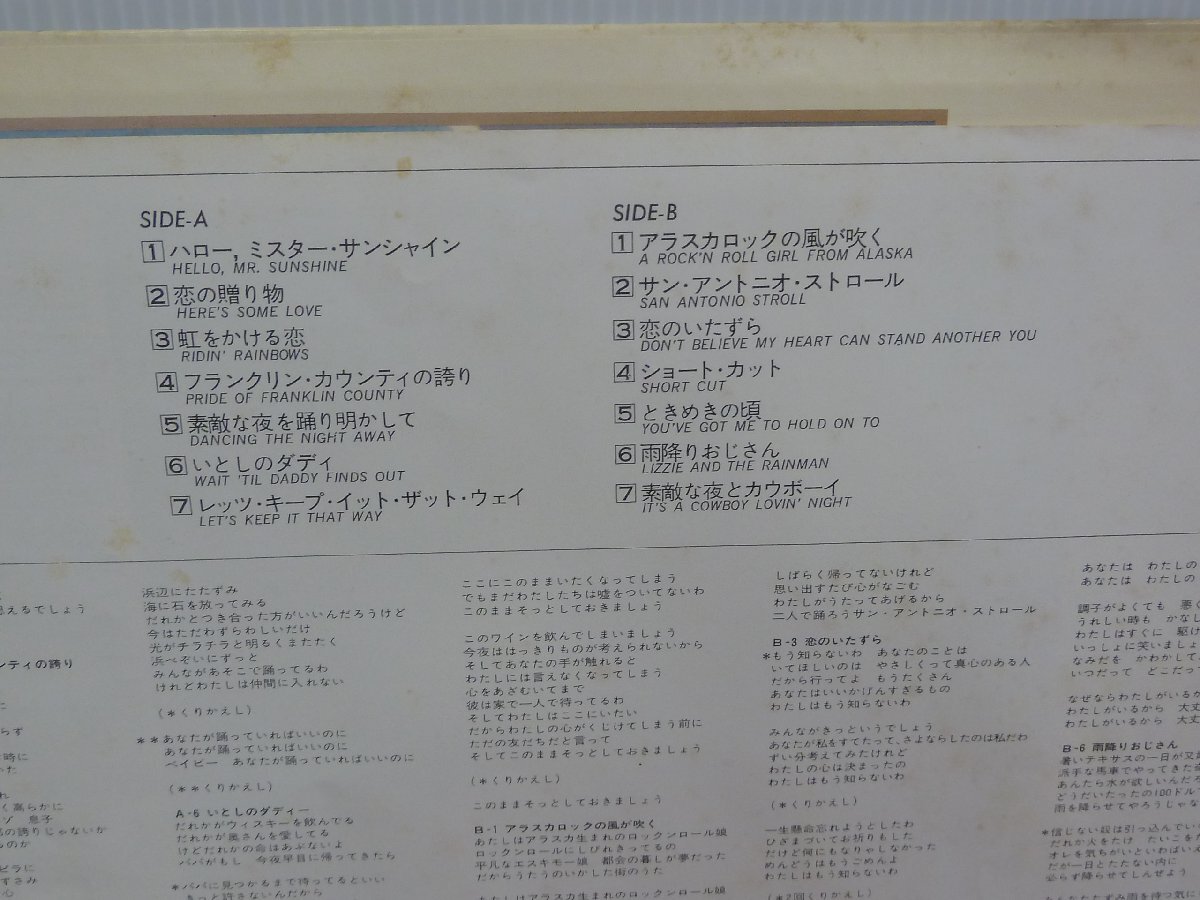 SIDE-A
1 ハロー,ミスター・サンシャイン
HELLO, MR. SUNSHINE
2 恋の贈り物
HERE'S SOME LOVE
3 虹をかける恋
RIDIN' RAINBOWS
4 フランクリン・カウンティの誇り
PRIDE OF FRANKLIN COUNTY
5 素敵な夜を踊り明かして
DANCING THE NIGHT AWAY
6 いとしのダディ
WAIT 'TIL DADDY FINDS OUT
7 レッツ・キープ・イット・ザット・ウェイ
LET'S KEEP IT THAT WAY
SIDE-B
1 アラスカロックの風が吹く
A ROCK'N ROLL GIRL FROM ALASKA
2 サン・アントニオ・ストロール
SAN ANTONIO STROLL
3 恋のいたずら
DON'T BELIEVE MY HEART CAN STAND ANOTHER YOU
4 ショート・カット
SHORT CUT
5 ときめきの頃
YOU'VE GOT ME TO HOLD ON TO
6 雨降りおじさん
LIZZIE AND THE RAINMAN
7 素敵な夜とカウボーイ
IT'S A COWBOY LOVIN' NIGHT
えるでしょう
ンティの誇り
に
らず
時に
れ
く高らかに
ゾ 息子
の誇りじゃないか
ものか
ビラに
すさみ
心
浜辺にたたずみ
海に石を放ってみる
だれかとつき合った方がいいんだろうけど
今はただわずらわしいだけ
光がチラチラと明るくまたたく
浜べぞいにずっと
みんながあそこで踊ってるわ
けれどわたしは仲間に入れない
(*くりかえし)
**あなたが踊っていればいいのに
あなたが踊っていればいいのに
ベイビー あなたが踊っていればいいのに
(**くりかえし)
A-6 いとしのダディー
だれかがウィスキーを飲んでる
だれかが奥さんを愛してる
けどだれかの命はあぶないよ
パパがもし 今夜早目に帰ってきたら
*パパに見つかるまで待ってるといい
きっと許さないんだから
ここにこのままいたくなってしまう
でもまだわたしたちは嘘をついてないわ
このままそっとしておきましょう
このワインを飲んでしまいましょう
今夜ははっきりものが考えられないから
そしてあなたの手が触れると
わたしには言えなくなってしまう
心をあざむいてまで
彼は家で一人で待ってるわ
そしてわたしはここにいたい
だからわたしの心がくじけてしまう前に
ただの友だちだと言って
そしてこのままそっとしておきましょう
(*くりかえし)
このままそっとしておきましょう
B-1 アラスカロックの風が吹く
あたしはアラスカ生まれのロックンロール娘
ロックンロールにしびれきってるの
平凡なエスキモー娘 都会の暮しが夢だった
だからうたうのいかした街のうた
あたしはアラスカ生まれのロックンロール娘
しばらく帰ってないけれど
思い出すたび心がなごむ
わたしがうたってあげるから
二人で踊ろうサン・アントニオ・ストロール
B-3 恋のいたずら
*もう知らないわ あなたのことは
いてほしいのは やさしくって真心のある人
だから行ってよ もうたくさん
あなたはいいかげんすぎるもの
わたしはもう知らないわ
みんながきっというでしょう
あなたが私をすてたって、さよならしたのは私だわ
ずい分考えてみたけれど
わたしの心は決まったの
わたしはもう知らないわ
(*くりかえし)
一生懸命忘れようとしたわ
ひざまづいてお祈りもした
だけど何にもなりゃしなかった
めんどうはもうごめんよ
わたしはもう知らないわ
(*2回くりかえし)
あなたは わたしの
あなたは わたしの
調子がよくても 悪く
うれしい時も かなし
わたしはすぐに 駆け
いっしょに笑いましょ
なみだを かわかして
いつだって どこだって
なぜならわたしがいるか
わたしがいるから 大丈
わたしがいるから 大丈
B-6 雨降りおじさん
暑いテキサスの一日が又
派手な馬車でやってきた
あんたら水が欲しいんだ
どうだいたったの100ドル
雨を降らせてやろうじゃな
*信じない奴は引っ込んでい
だれか火をたけ たいこをた
オレを気ちがいといわばいえ
だが一日とたたない内に
必らず降らせてしんぜよう